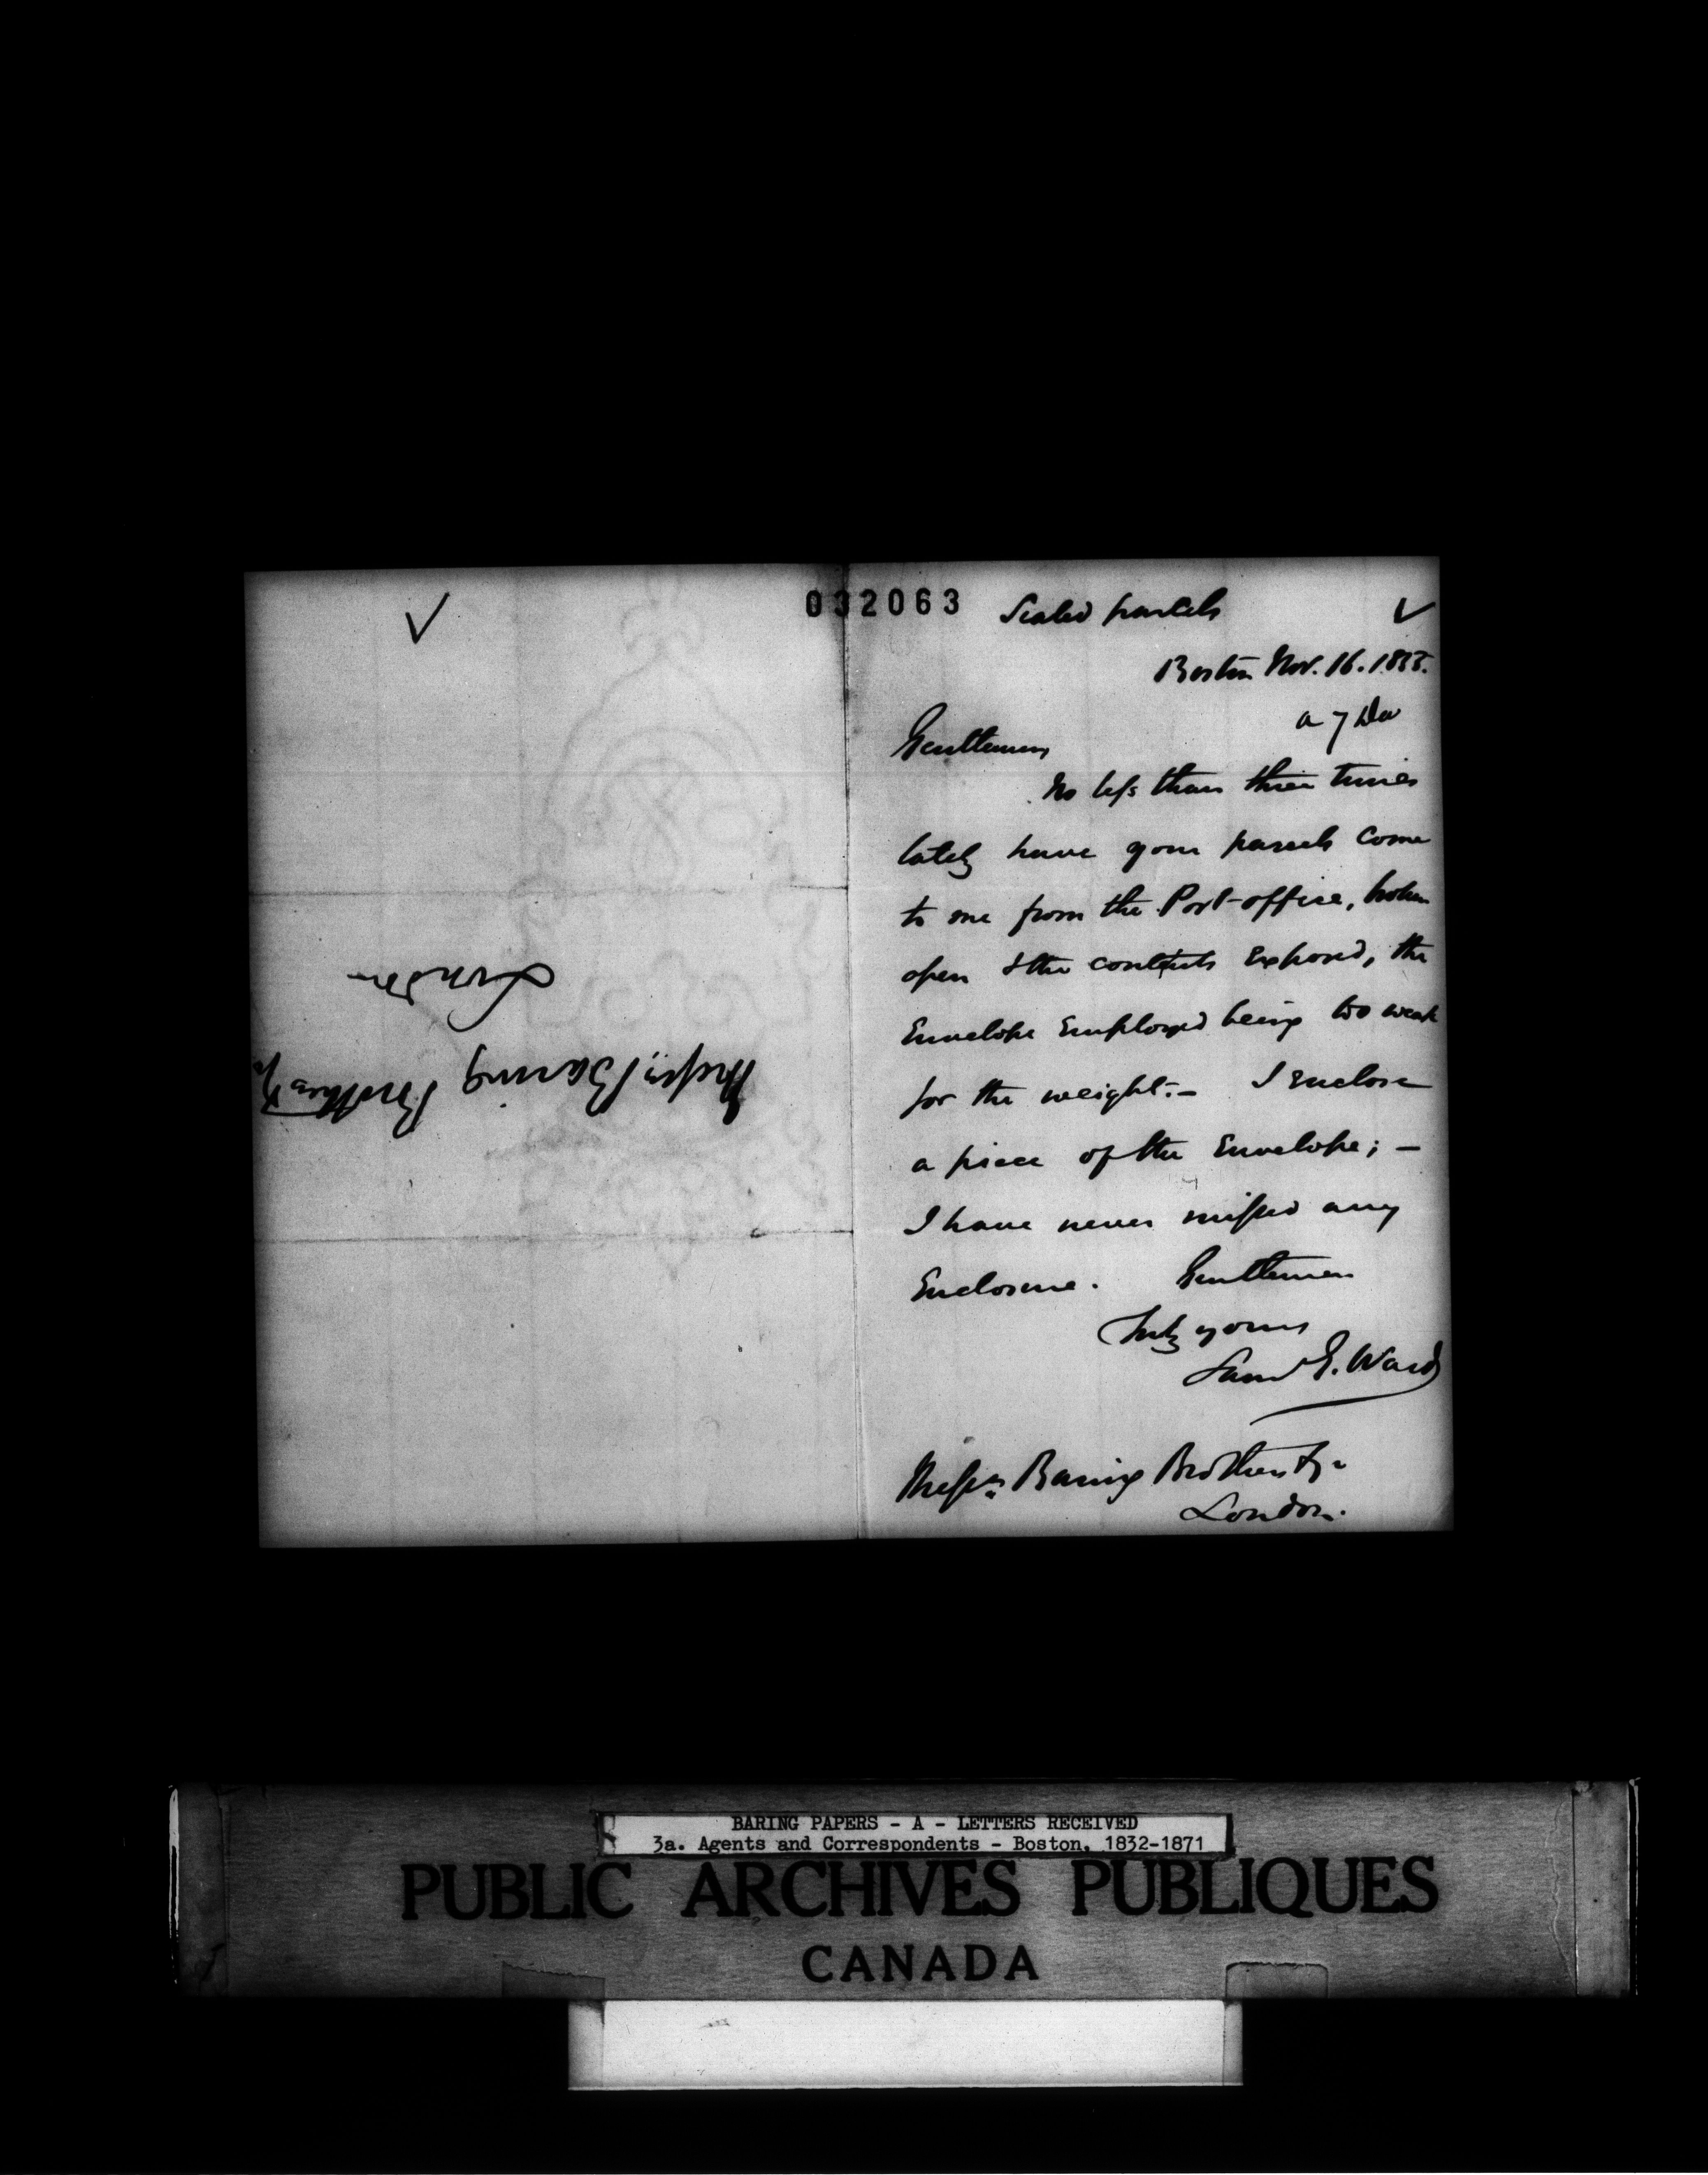 ✓
London
Messrs Baring Brothers & Co
032063
Sealed parcels ✓
Boston Nov. 16. 1855.
a 7 De
Gentlemen,
No less than three times
lately have your parcels come
to me from the Post-office, broken
open & the contents exposed, the
Envelope Employed being too weak
for the weight. — I Enclose
a piece of the Envelope; —
I have never missed any
Enclosure. Gentlemen
Truly yours
Saml G. Ward
Messrs Baring Brothers & Co
London.
BARING PAPERS - A - LETTERS RECEIVED
3a. Agents and Correspondents - Boston, 1832-1871
PUBLIC ARCHIVES PUBLIQUES
CANADA